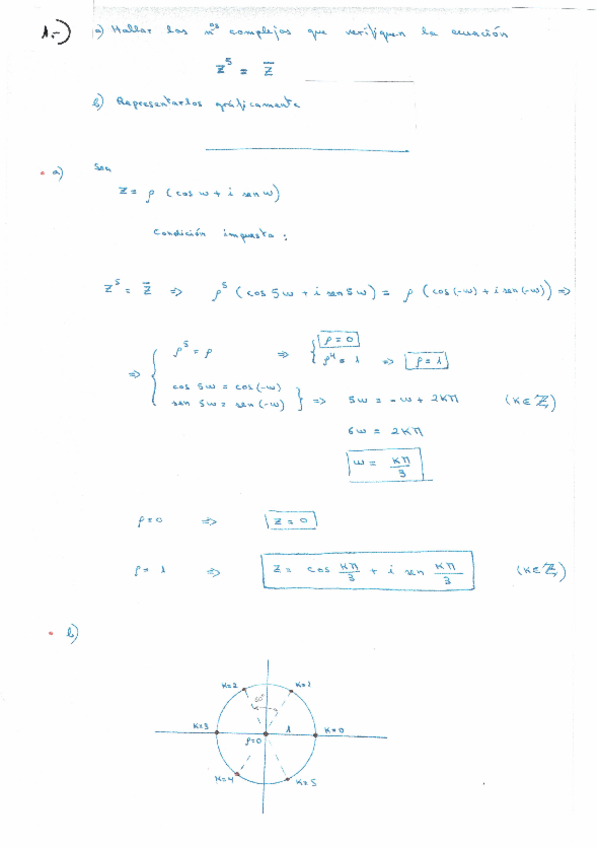 1.-) a) Hallar los nºs complejos que verifiquen la ecuación
z⁵ = z̄
b) Representarlos gráficamente
a) Sea
z = ρ (cos ω + i sen ω)
Condición impuesta :
z⁵ = z̄ => ρ⁵ (cos 5ω + i sen 5ω) = ρ (cos(-ω) + i sen(-ω)) =>
=> { ρ⁵ = ρ => { ρ = 0
ρ⁴ = 1 => ρ = 1
cos 5ω = cos(-ω)
sen 5ω = sen(-ω) } => 5ω = -ω + 2Kπ (K∈ℤ)
6ω = 2Kπ
ω = Kπ/3
ρ=0 => z = 0
ρ = 1 => z = cos Kπ/3 + i sen Kπ/3 (K∈ℤ)
b)
K=2 K=1
60°
K=3 1 K=0
ρ=0
K=4 K=5